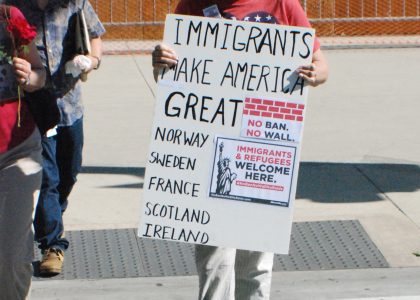 IMMIGRANTS
MAKE AMERICA
GREAT
NO BAN.
NO WALL.
NORWAY
SWEDEN
FRANCE
SCOTLAND
IRELAND
IMMIGRANTS
& REFUGEES
WELCOME
HERE.